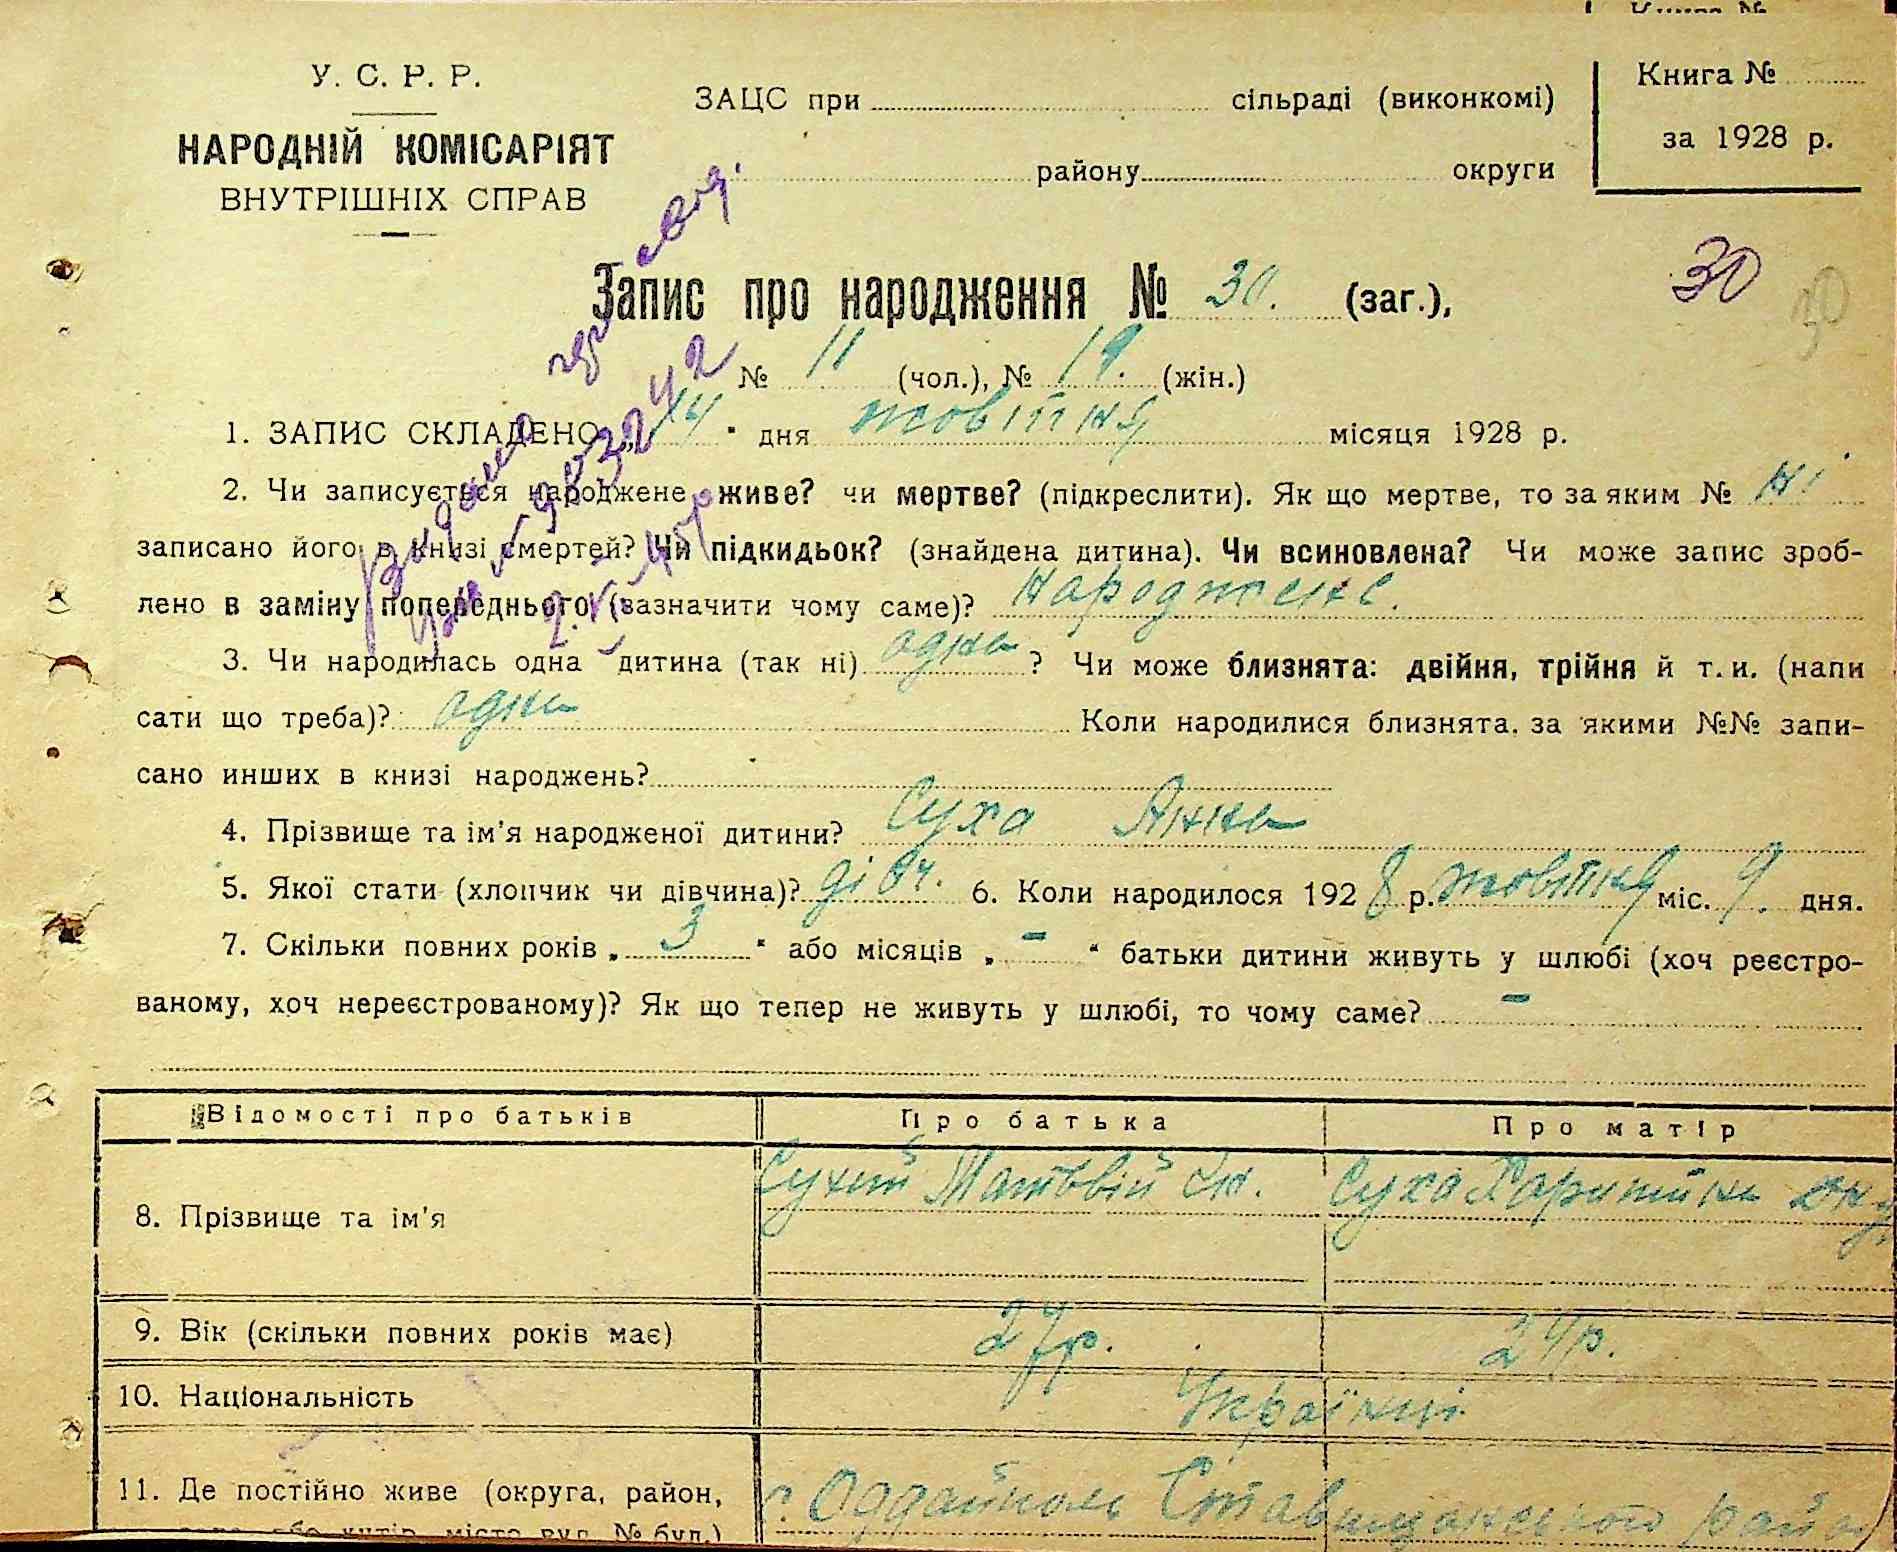 У. С. Р. Р.
НАРОДНІЙ КОМІСАРІЯТ
ВНУТРІШНІХ СПРАВ
ЗАЦС при сільраді (виконкомі)
району округи
Книга №
Книга №
за 1928 р.
30
30
Запис про народження № 30. (заг.),
№ 11 (чол.), № 19. (жін.)
1. ЗАПИС СКЛАДЕНО „14" дня жовтня місяця 1928 р.
2. Чи записується народжене живе? чи мертве? (підкреслити). Як що мертве, то за яким № ні
записано його в книзі смертей? Чи підкидьок? (знайдена дитина). Чи всиновлена? Чи може запис зроб-
лено в заміну попереднього (зазначити чому саме)? народжене.
3. Чи народилась одна дитина (так ні) одна ? Чи може близнята: двійня, трійня й т. и. (напи
сати що треба)? одна Коли народилися близнята, за якими №№ запи-
сано инших в книзі народжень?
4. Прізвище та ім'я народженої дитини? Суха Анна
5. Якої стати (хлопчик чи дівчина)? дівч. 6. Коли народилося 1928 р. жовтня міс. 9. дня.
7. Скільки повних років „ 3 " або місяців „ - " батьки дитини живуть у шлюбі (хоч реєстро-
ваному, хоч нереєстрованому)? Як що тепер не живуть у шлюбі, то чому саме? -
Відомості про батьків Про батька Про матір
8. Прізвище та ім'я Сухий Матвій Суха Харитина
9. Вік (скільки повних років має) 27р. 24р.
10. Національність Українці
11. Де постійно живе (округа, район, Ставищанського
село або хутір, місто вул. № буд.)